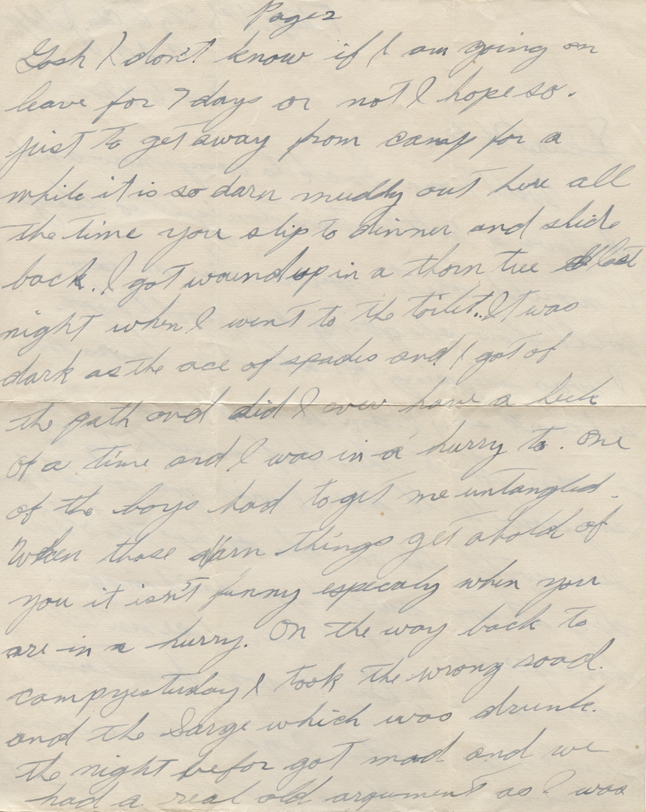 Page 2
Gosh I don't know if I am going on
leave for 7 days or not I hope so.
just to get away from camp for a
while it is so darn muddy out here all
the time you slip to dinner and slide
back. I got wound up in a thorn tree last
night when I went to the toilet. It was
dark as the ace of spades and I got of
the path and did I ever have a heck
of a time and I was in a hurry to. One
of the boys had to get me untangled.
When those darn things get ahold of
you it isn't funny especialy when you
are in a hurry. On the way back to
camp yesterday I took the wrong road.
and the Sarge which was drunk.
the night befor got mad and we
had a real old argument as I was